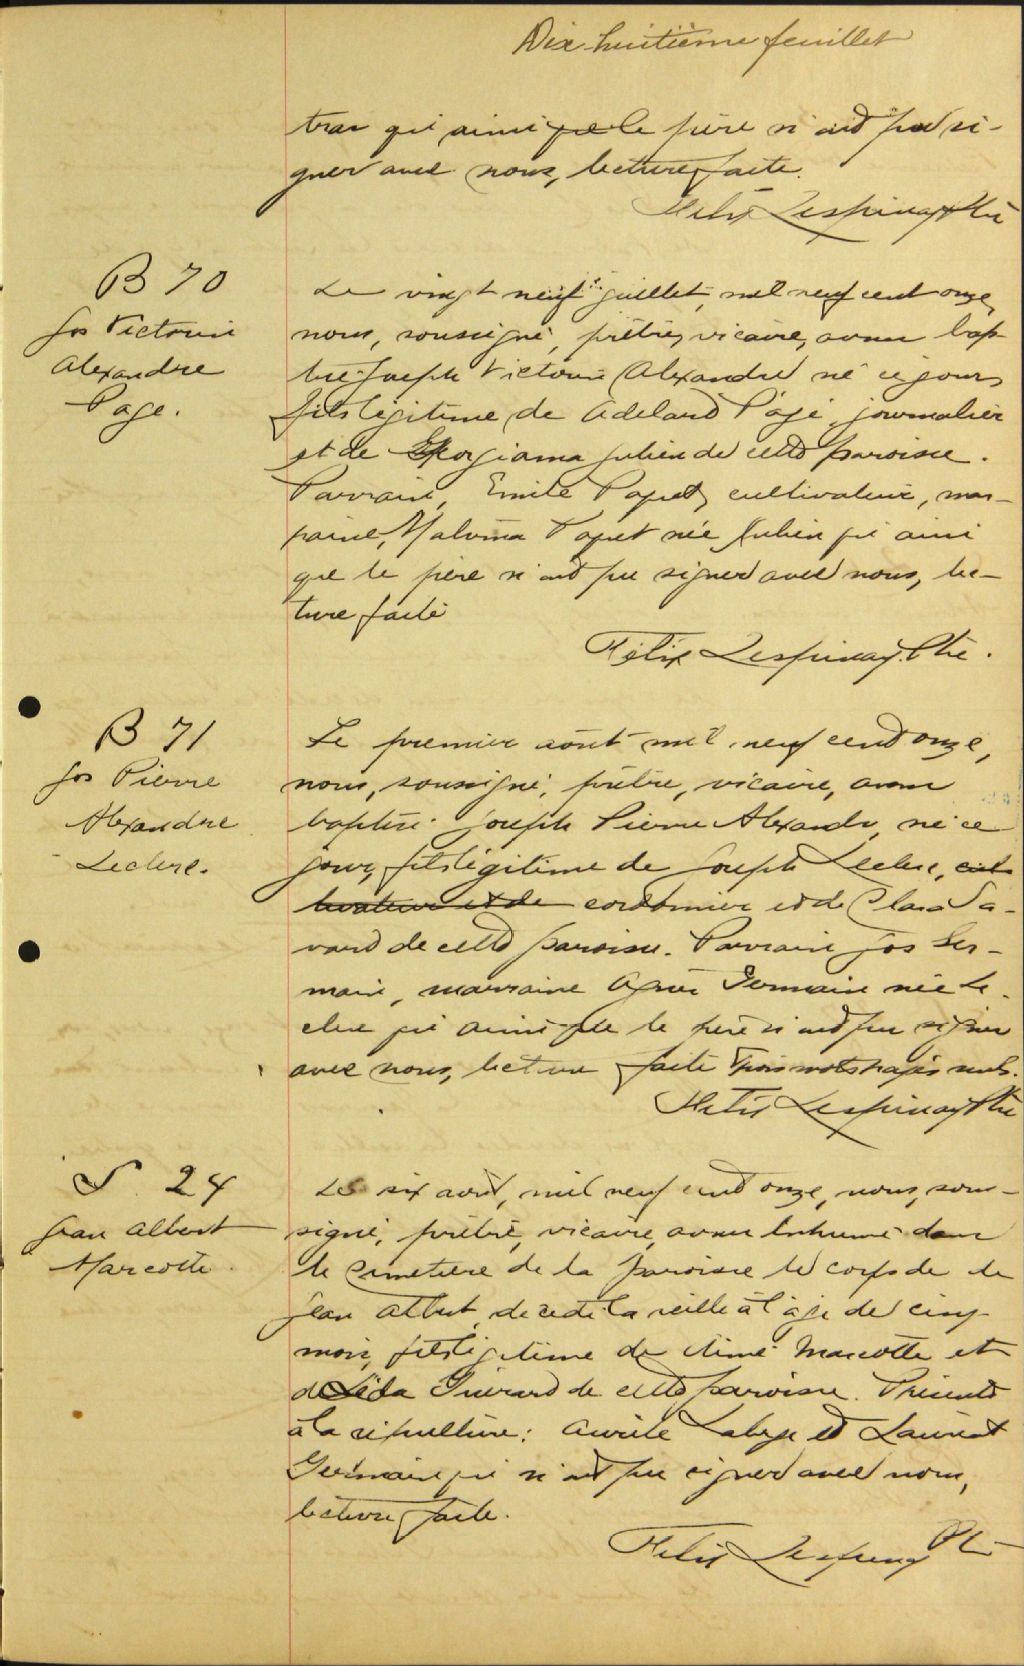 Dix-huitième feuillet
trar qui ainsi que le père n'ont pu si-
gner avec nous, lecture faite.
Félix Lespinay Ptre
B 70
Jos Victorin
Alexandre
Page.
Le vingt neuf juillet, mil neuf cent onze,
nous, soussigné, prêtre, vicaire, avons bap-
tisé Joseph Victorin Alexandre né ce jours
fils légitime de Adelard Pagé, journalier
et de Georgiana Julien de cette paroisse.
Parrain, Emile Paquet, cultivateur, mar-
raine, Malvina Paquet née Julien qui ainsi
que le père n'ont pu signer avec nous, lec-
ture faite
Félix Lespinay Ptre.
B 71
Jos Pierre
Alexandre
Leclerc.
Le premier août mil neuf cent onze,
nous, soussigné, prêtre, vicaire, avons
baptisé Joseph Pierre Alexandre, né ce
jour, fils légitime de Joseph Leclerc, culti
vateur et de cordonnier et de Clara Sa-
vard de cette paroisse. Parrain Jos Ger-
main, marraine Germain née Le-
clerc qui ainsi que le père n'ont pu signer
avec nous, lecture faite Trois mots rayés nuls.
Félix Lespinay Ptre
S. 24
Jean Albert
Marcotte.
Le six août, mil neuf cent onze, nous, sous-
signé, prêtre, vicaire, avons inhumé dans
le cimetière de la paroisse le corps de de
Jean Albert, décédé la veille à l'âge de cinq
mois, fils légitime de Aimé Marcotte et
de Léda Guérard de cette paroisse. Présents
à la sépulture: et Lauréat
Germain qui n'ont pu signer avec nous,
lecture faite.
Félix Lespinay Ptre